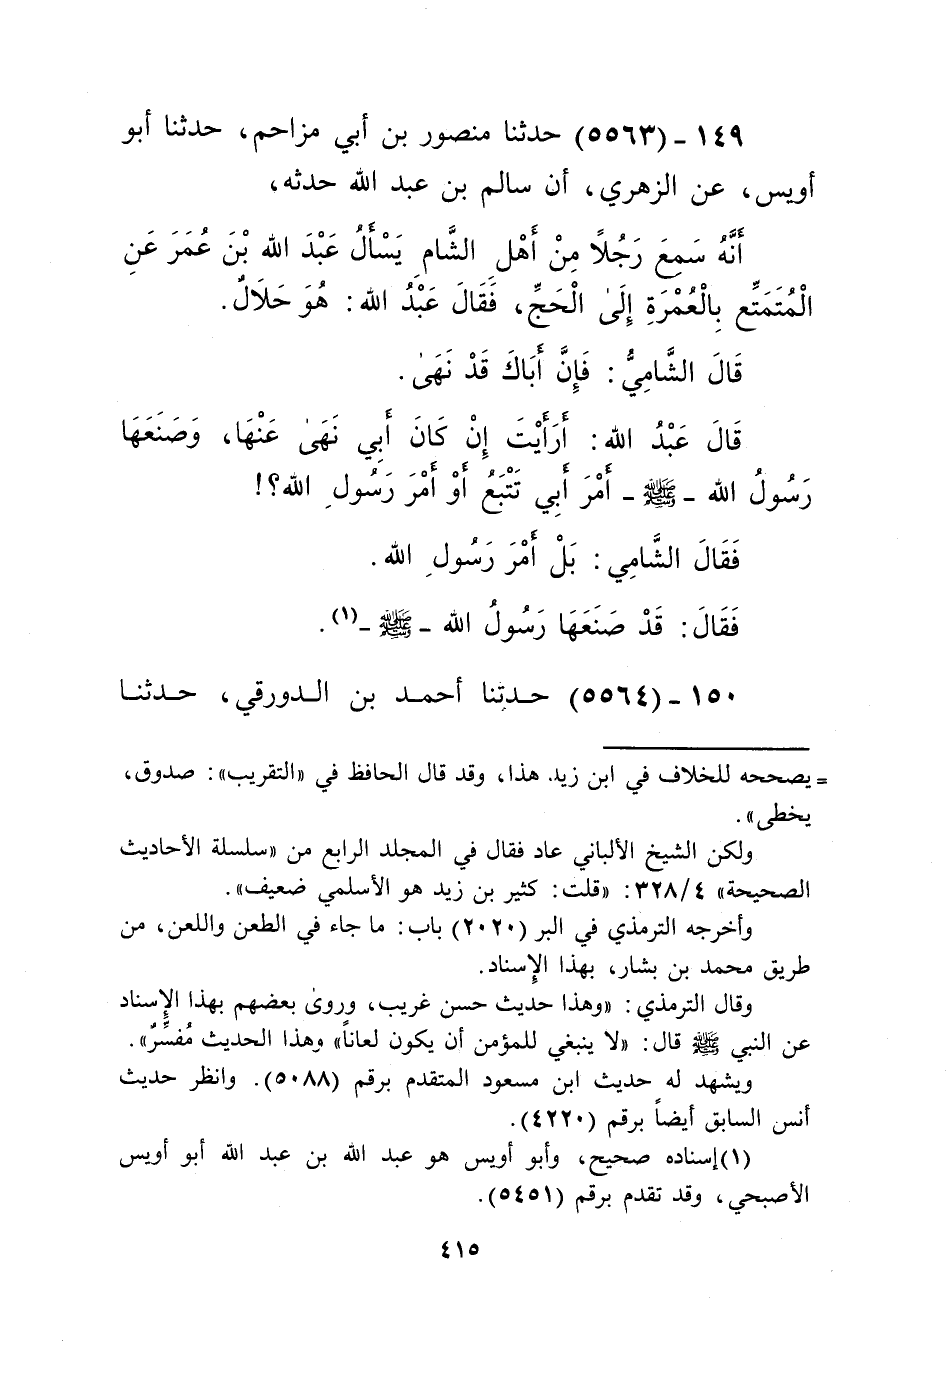 ١٤٩ ـ (٥٥٦٣) حدثنا منصور بن أبي مزاحم، حدثنا أبو
أويس، عن الزهري، أن سالم بن عبد الله حدثه،
أَنَّهُ سَمِعَ رَجُلاً مِنْ أَهْلِ الشَّامِ يَسْأَلُ عَبْدَ الله بْنَ عُمَرَ عَنِ
الْمُتَمَتِّعِ بِالْعُمْرَةِ إِلَىٰ الْحَجِّ، فَقَالَ عَبْدُ الله: هُوَ حَلَالٌ.
قَالَ الشَّامِيُّ: فَإِنَّ أَبَاكَ قَدْ نَهَىٰ.
قَالَ عَبْدُ الله: أَرَأَيْتَ إِنْ كَانَ أَبِي نَهَىٰ عَنْهَا، وَصَنَعَهَا
رَسُولُ الله ـ ﷺ ـ أَمْرَ أَبِي تَتْبَعُ أَوْ أَمْرَ رَسُولِ الله؟!
فَقَالَ الشَّامِي: بَلْ أَمْرَ رَسُولِ الله.
فَقَالَ: قَدْ صَنَعَهَا رَسُولُ الله ـ ﷺ ـ(١).
١٥٠ ـ (٥٥٦٤) حدثنا أحمد بن الدورقي، حدثنا
= يصححه للخلاف في ابن زيد. هذا، وقد قال الحافظ في «التقريب»: صدوق،
يخطى».
ولكن الشيخ الألباني عاد فقال في المجلد الرابع من «سلسلة الأحاديث
الصحيحة» ٣٢٨/٤: «قلت: كثير بن زيد هو الأسلمي ضعيف».
وأخرجه الترمذي في البر (٢٠٢٠) باب: ما جاء في الطعن واللعن، من
طريق محمد بن بشار، بهذا الإسناد.
وقال الترمذي: «وهذا حديث حسن غريب، وروىٰ بعضهم بهذا الإسناد
عن النبي ﷺ قال: «لا ينبغي للمؤمن أن يكون لعاناً» وهذا الحديث مُفسِّرٌ».
ويشهد له حديث ابن مسعود المتقدم برقم (٥٠٨٨). وانظر حديث
أنس السابق أيضاً برقم (٤٢٢٠).
(١) إسناده صحيح، وأبو أويس هو عبد الله بن عبد الله أبو أويس
الأصبحي، وقد تقدم برقم (٥٤٥١).
٤١٥